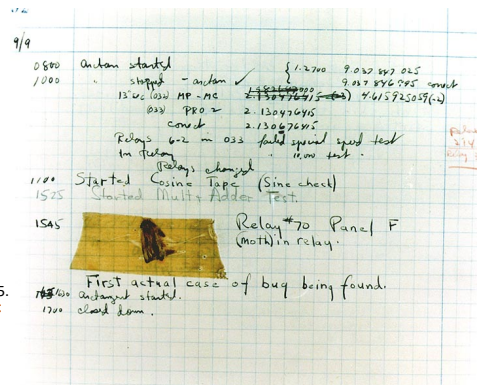 9/9
0800 Antan started { 1.2700 9.037 847 025
1000 " stopped - antan ✓ 9.037 846 995 correct
13"uc (032) MP - MC 2.130476415 4.615925059(-2)
(033) PRO 2 2.130476415
correct 2.130676415
Relays 6-2 in 033 failed special speed test
in relay " 10,000 test.
Relays changed
1100 Started Cosine Tape (Sine check)
1525 Started Mult+Adder Test.
1545 Relay #70 Panel F
(Moth) in relay.
First actual case of bug being found.
1630 antangent started.
1700 closed down.